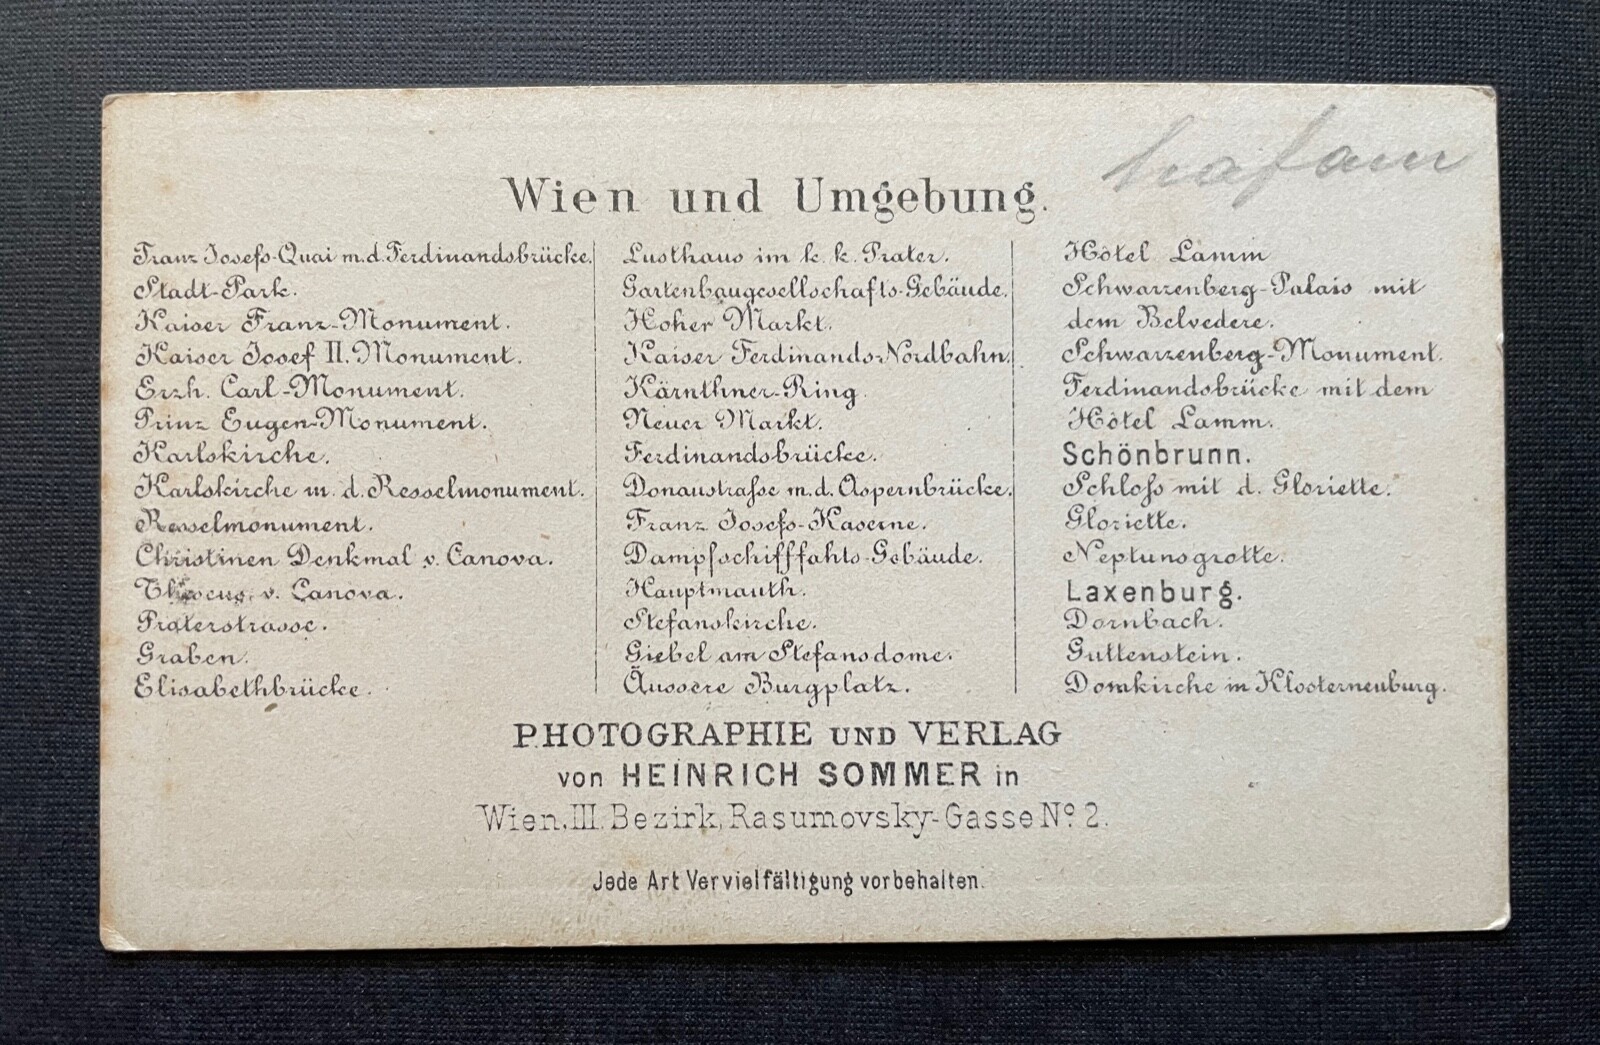 Wien und Umgebung.
Franz Josefs-Quai m.d. Ferdinandsbrücke.
Stadt-Park.
Kaiser Franz-Monument.
Kaiser Josef II. Monument.
Erzh. Carl-Monument.
Prinz Eugen-Monument.
Karlskirche.
Karlskirche m. d. Resselmonument.
Resselmonument.
Christinen Denkmal v. Canova.
Theseus v. Canova.
Praterstrasse.
Graben.
Elisabethbrücke.
Lusthaus im k. k. Prater.
Gartenbaugesellschafts-Gebäude.
Hoher Markt.
Kaiser Ferdinands-Nordbahn.
Kärnthner-Ring.
Neuer Markt.
Ferdinandsbrücke.
Donaustraſse m.d. Aspernbrücke.
Franz Josefs-Kaserne.
Dampfschifffahts-Gebäude.
Hauptmauth.
Stefanskirche.
Giebel am Stefansdome.
Äussere Burgplatz.
Hôtel Lamm
Schwarzenberg-Palais mit
dem Belvedere.
Schwarzenberg-Monument.
Ferdinandsbrücke mit dem
Hôtel Lamm.
Schönbrunn.
Schloſs mit d. Gloriette.
Gloriette.
Neptunsgrotte.
Laxenburg.
Dornbach.
Guttenstein.
Domkirche in Klosterneuburg.
PHOTOGRAPHIE UND VERLAG
von HEINRICH SOMMER in
Wien, III. Bezirk, Rasumovsky-Gasse Nº 2.
Jede Art Vervielfältigung vorbehalten.